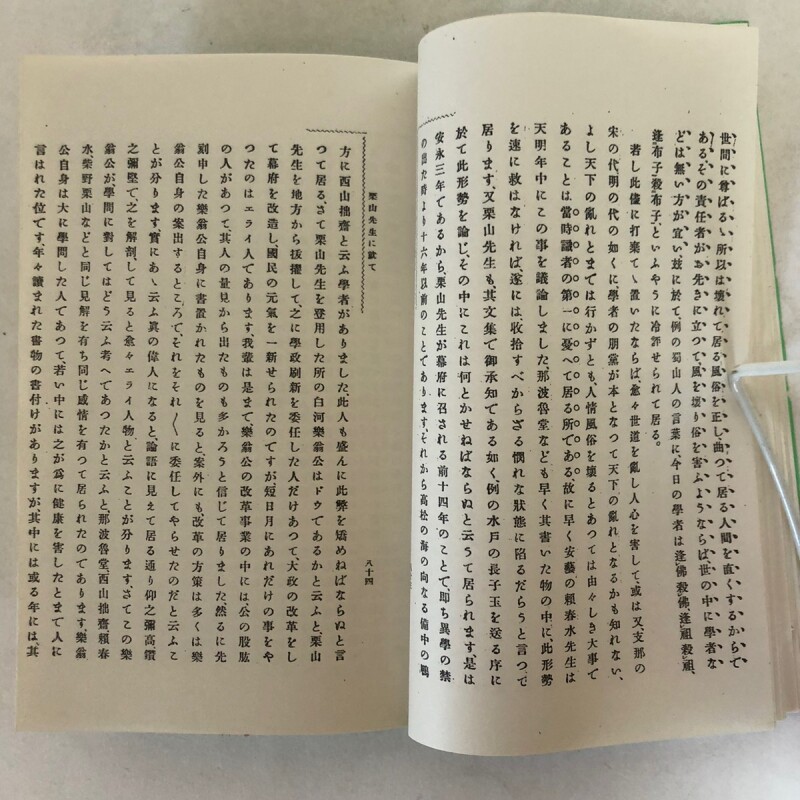 世間に尊ばるゝ所以は壊れて居る風俗を正し、曲つて居る人間を直くするからで
ある、その責任者がお先きに立つて、風を壊り俗を害ふようならば世の中に學者な
どは無い方が宜い、玆に於て、例の蜀山人の言葉に今日の學者は逢佛殺佛、逢祖殺祖、
逢布子殺布子、といふやうに冷評せられて居る。
若し此儘に打棄てゝ置いたならば、愈々世道を亂し人心を害して或は又支那の
宋の代、明の代の如くに、學者の朋黨が本となつて天下の亂れとなるかも知れない、
よし天下の亂れとまでは行かずとも、人情風俗を壊るとあつては由々しき大事で
あることは當時識者の第一に憂へて居る所である、故に早く安藝の頼春水先生は
天明年中にこの事を議論しました、那波魯堂なども早く其書いた物の中に、此形勢
を速に救はなければ、遂には、收拾すべからざる憫れな狀態に陷るだらうと言つて
居ります、又栗山先生も、其文集で御承知である如く、例の水戸の長子玉を送る序に
於て此形勢を論じ、その中にこれは何とかせねばならぬと云うて居られます、是は
安永三年であるから、栗山先生が幕府に召される前十四年のことで、即ち異學の禁
の出た時より十六年以前のことであります、それから高松の海の向なる備中の鴨
栗山先生に就て
八十四
方に西山拙齋と云ふ學者がありました此人も盛んに此弊を矯めねばならぬと言
つて居る、さて栗山先生を登用した所の白河樂翁公はドウであるかと云ふと、栗山
先生を地方から拔擢して、之に學政刷新を委任した人だけあつて、大政の改革をし
て幕府を改造し、國民の元氣を一新せられたのですが、短日月にあれだけの事をや
つたのはエライ人であります、我輩は是まで、樂翁公の改革事業の中には公の股肱
の人があつて、其人の量見から出たものも多かろうと信じて居りました、然るに先
刻申した樂翁公自身に書置かれたものを見ると案外にも、改革の方策は多くは樂
翁公自身の案出するところで、それをそれ〳〵に委任してやらせたのだと云ふこ
とが分ります、實にあゝ云ふ眞の偉人になると、論語に見えて居る通り仰之彌高鑽
之彌堅で、之を解剖して見ると愈々エライ人物と云ふことが分ります、さてこの樂
翁公が、學問に對してはどう云ふ考へであつたかと云ふと、那波魯堂、西山拙齋、頼春
水、柴野栗山などと同じ見解を有ち同じ感情を有つて居られたのであります、樂翁
公自身は大に學問した人であつて、若い中には之が爲に健康を害したとまで人に
言はれた位です、年々讀まれた書物の書付けがありますが、其中には或る年には、其